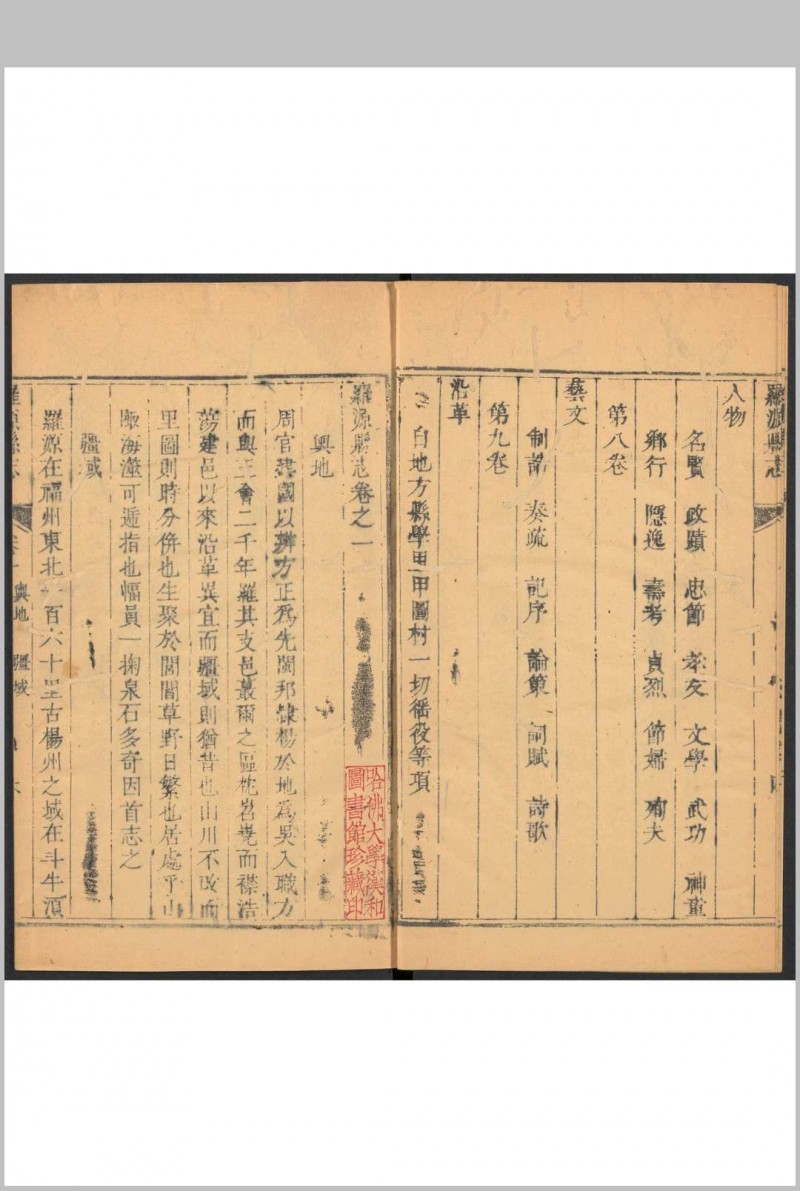 羅源縣志
人物
名賢 政蹟 忠節 孝友 文學 武功 神童
鄉行 隱逸 壽考 貞烈 節婦 殉夫
第八卷
藝文
制誥 奏疏 記序 論策 詞賦 詩歌
第九卷
沿革
白地方縣學里甲圖村一切徭役等項
羅源縣志卷之一
輿地
周官建國以辨方正為先閩邦隸楊於地為吳入職方
而輿王會二千年羅其支邑蕞爾之區枕岩嶤而襟浩
蕩建邑以來沿革異宜而疆域則猶昔也山川不改而
里圖則時分併也生聚於閭閻草野日繁也居處乎山
陬海澨可遁指也幅員一掬泉石多奇因首志之
疆域
羅源在福州東北一百六十里古楊州之域在斗牛須
羅源縣志 卷一 輿地 疆域
哈佛大學漢和
圖書館珍藏印